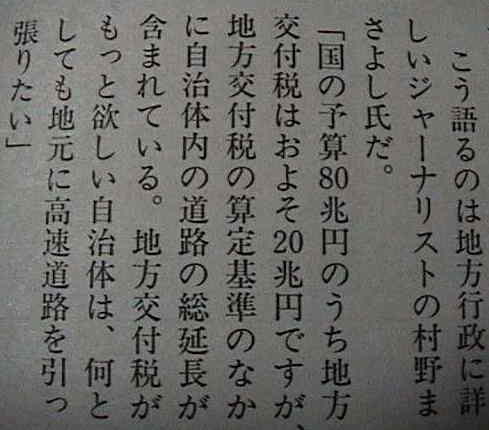 こう語るのは地方行政に詳
しいジャーナリストの村野ま
さよし氏だ。
「国の予算80兆円のうち地方
交付税はおよそ20兆円ですが、
地方交付税の算定基準のなか
に自治体内の道路の総延長が
含まれている。地方交付税が
もっと欲しい自治体は、何と
しても地元に高速道路を引っ
張りたい」